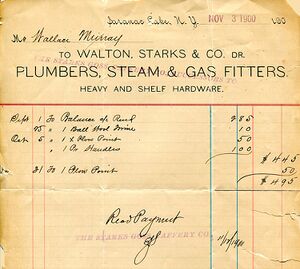 Saranac Lake, N. Y. NOV 3 1900 190
Mr Wallace Murray
TO WALTON, STARKS & CO. DR.
PLUMBERS, STEAM & GAS FITTERS.
HEAVY AND SHELF HARDWARE.
Sept 1 To Balance a/c Rend 285
25 " 1 Ball Wool Twine 10
Oct 5 " 1 Plow Point 50
" 1 Pr Handles 100
$ 445
31 To 1 Plow Point 50
$ 495
Recd Payment
THE STARKS CO.